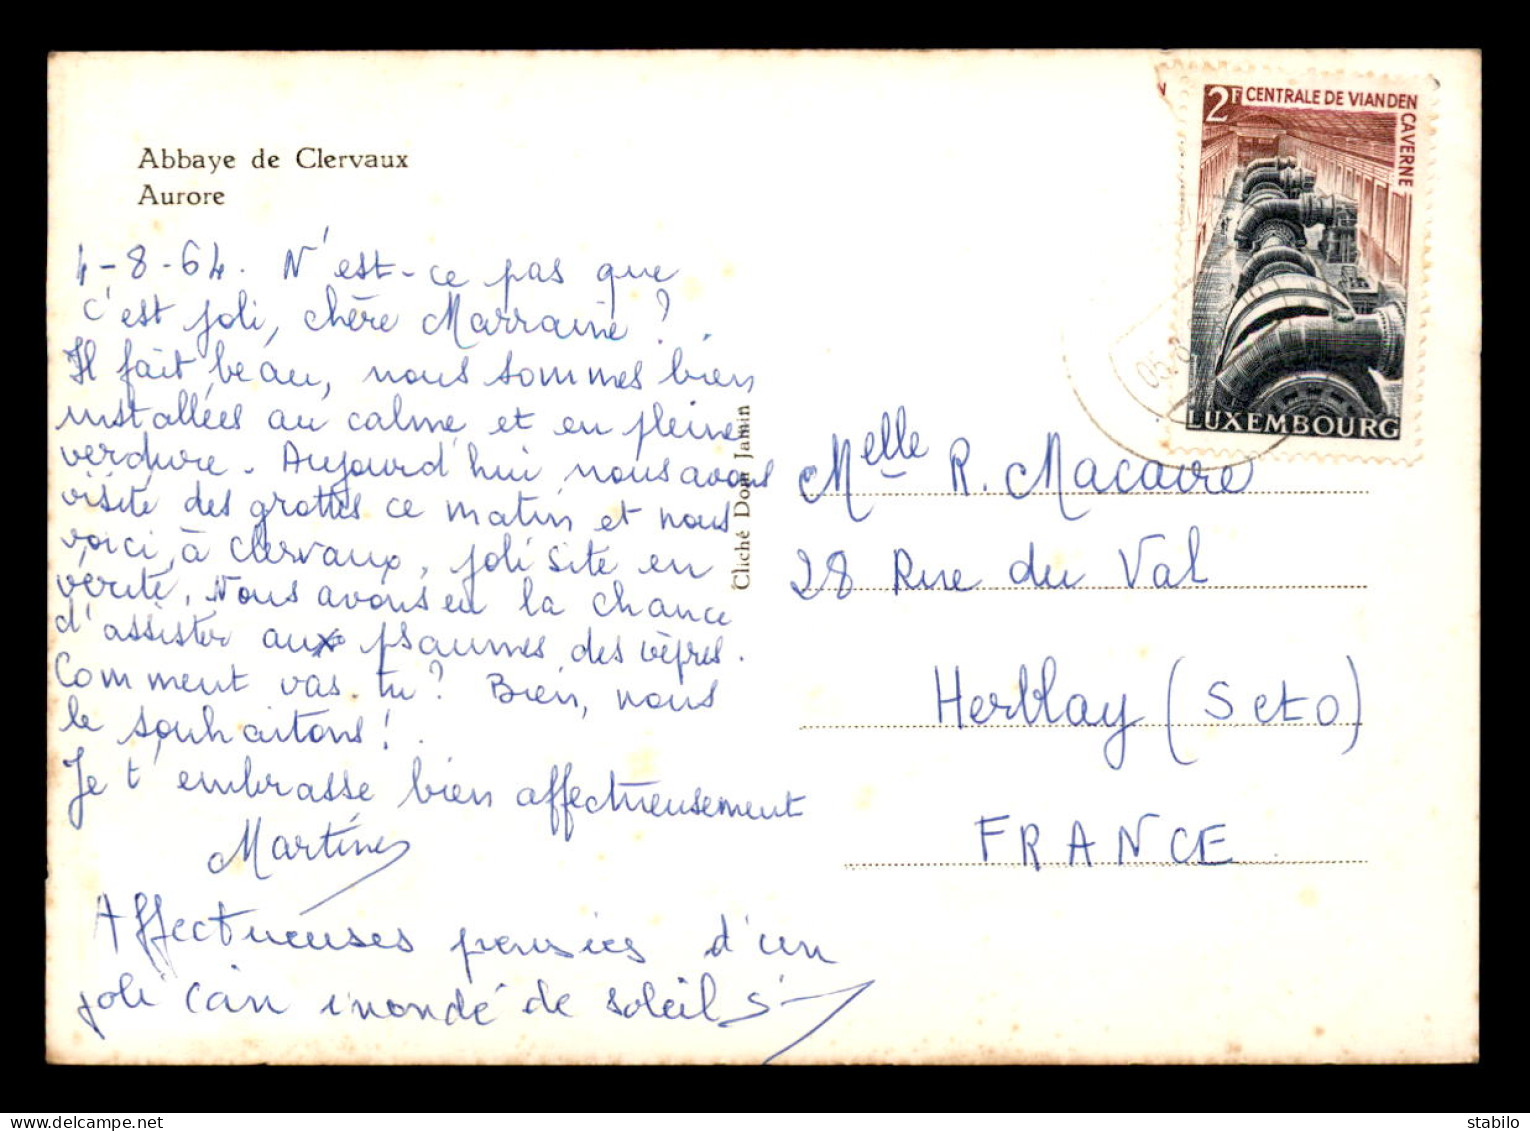 Abbaye de Clervaux
Aurore
4-8-64. N'est-ce pas que
c'est joli, chère Marraine ?
Il fait beau, nous sommes bien
installées au calme et en pleine
verdure. Aujourd'hui nous avons
visité des grottes ce matin et nous
voici à Clervaux, joli site en
vérité. Nous avons eu la chance
d'assister aux psaumes des vêpres.
Comment vas-tu ? Bien, nous
le souhaitons !
Je t'embrasse bien affectueusement
Martine
Affectueuses pensées d'un
joli coin inondé de soleil
Cliché Dom Jamin
2F CENTRALE DE VIANDEN
CAVERNE
LUXEMBOURG
Melle R. Macaire
28 Rue du Val
Herblay (S et O)
FRANCE